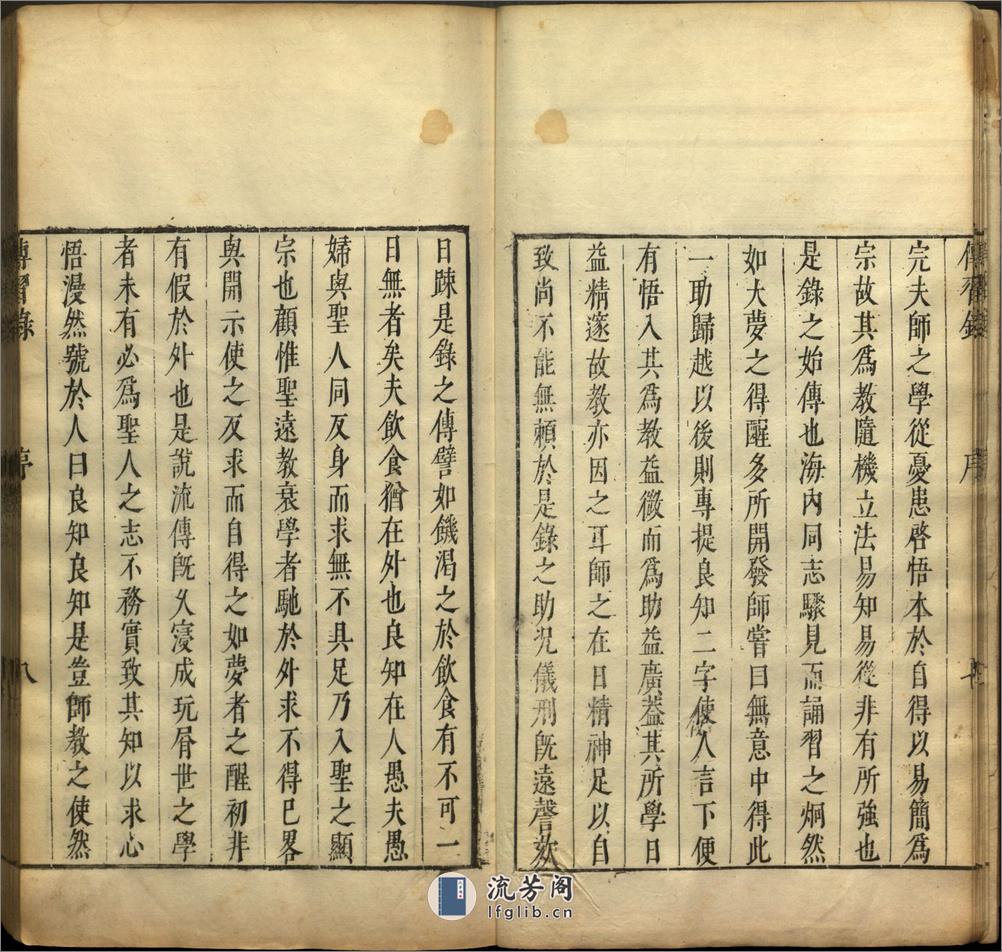 傳習錄 序
完夫師之學從憂患啓悟本於自得以易簡爲
宗故其爲教隨機立法易知易從非有所強也
是錄之始傳也海內同志驟見而誦習之炯然
如大夢之得醒多所開發師嘗曰無意中得此
一助歸越以後則專提良知二字使人言下便
有悟入其爲教益微而爲助益廣葢其所學日
益精邃故教亦因之耳師之在日精神足以自
致尚不能無賴於是錄之助况儀刑旣遠謦欬
日踈是錄之傳譬如饑渴之於飲食有不可一
日無者矣夫飲食猶在外也良知在人愚夫愚
婦與聖人同反身而求無不具足乃入聖之顯
宗也顧惟聖遠教衰學者馳於外求不得已畧
與開示使之反求而自得之如夢者之醒初非
有假於外也是說流傳旣久寖成玩屑世之學
者未有必爲聖人之志不務實致其知以求心
悟漫然號於人曰良知良知是豈師教之使然
傳習錄 序 八
流芳阁
lfglib.cn